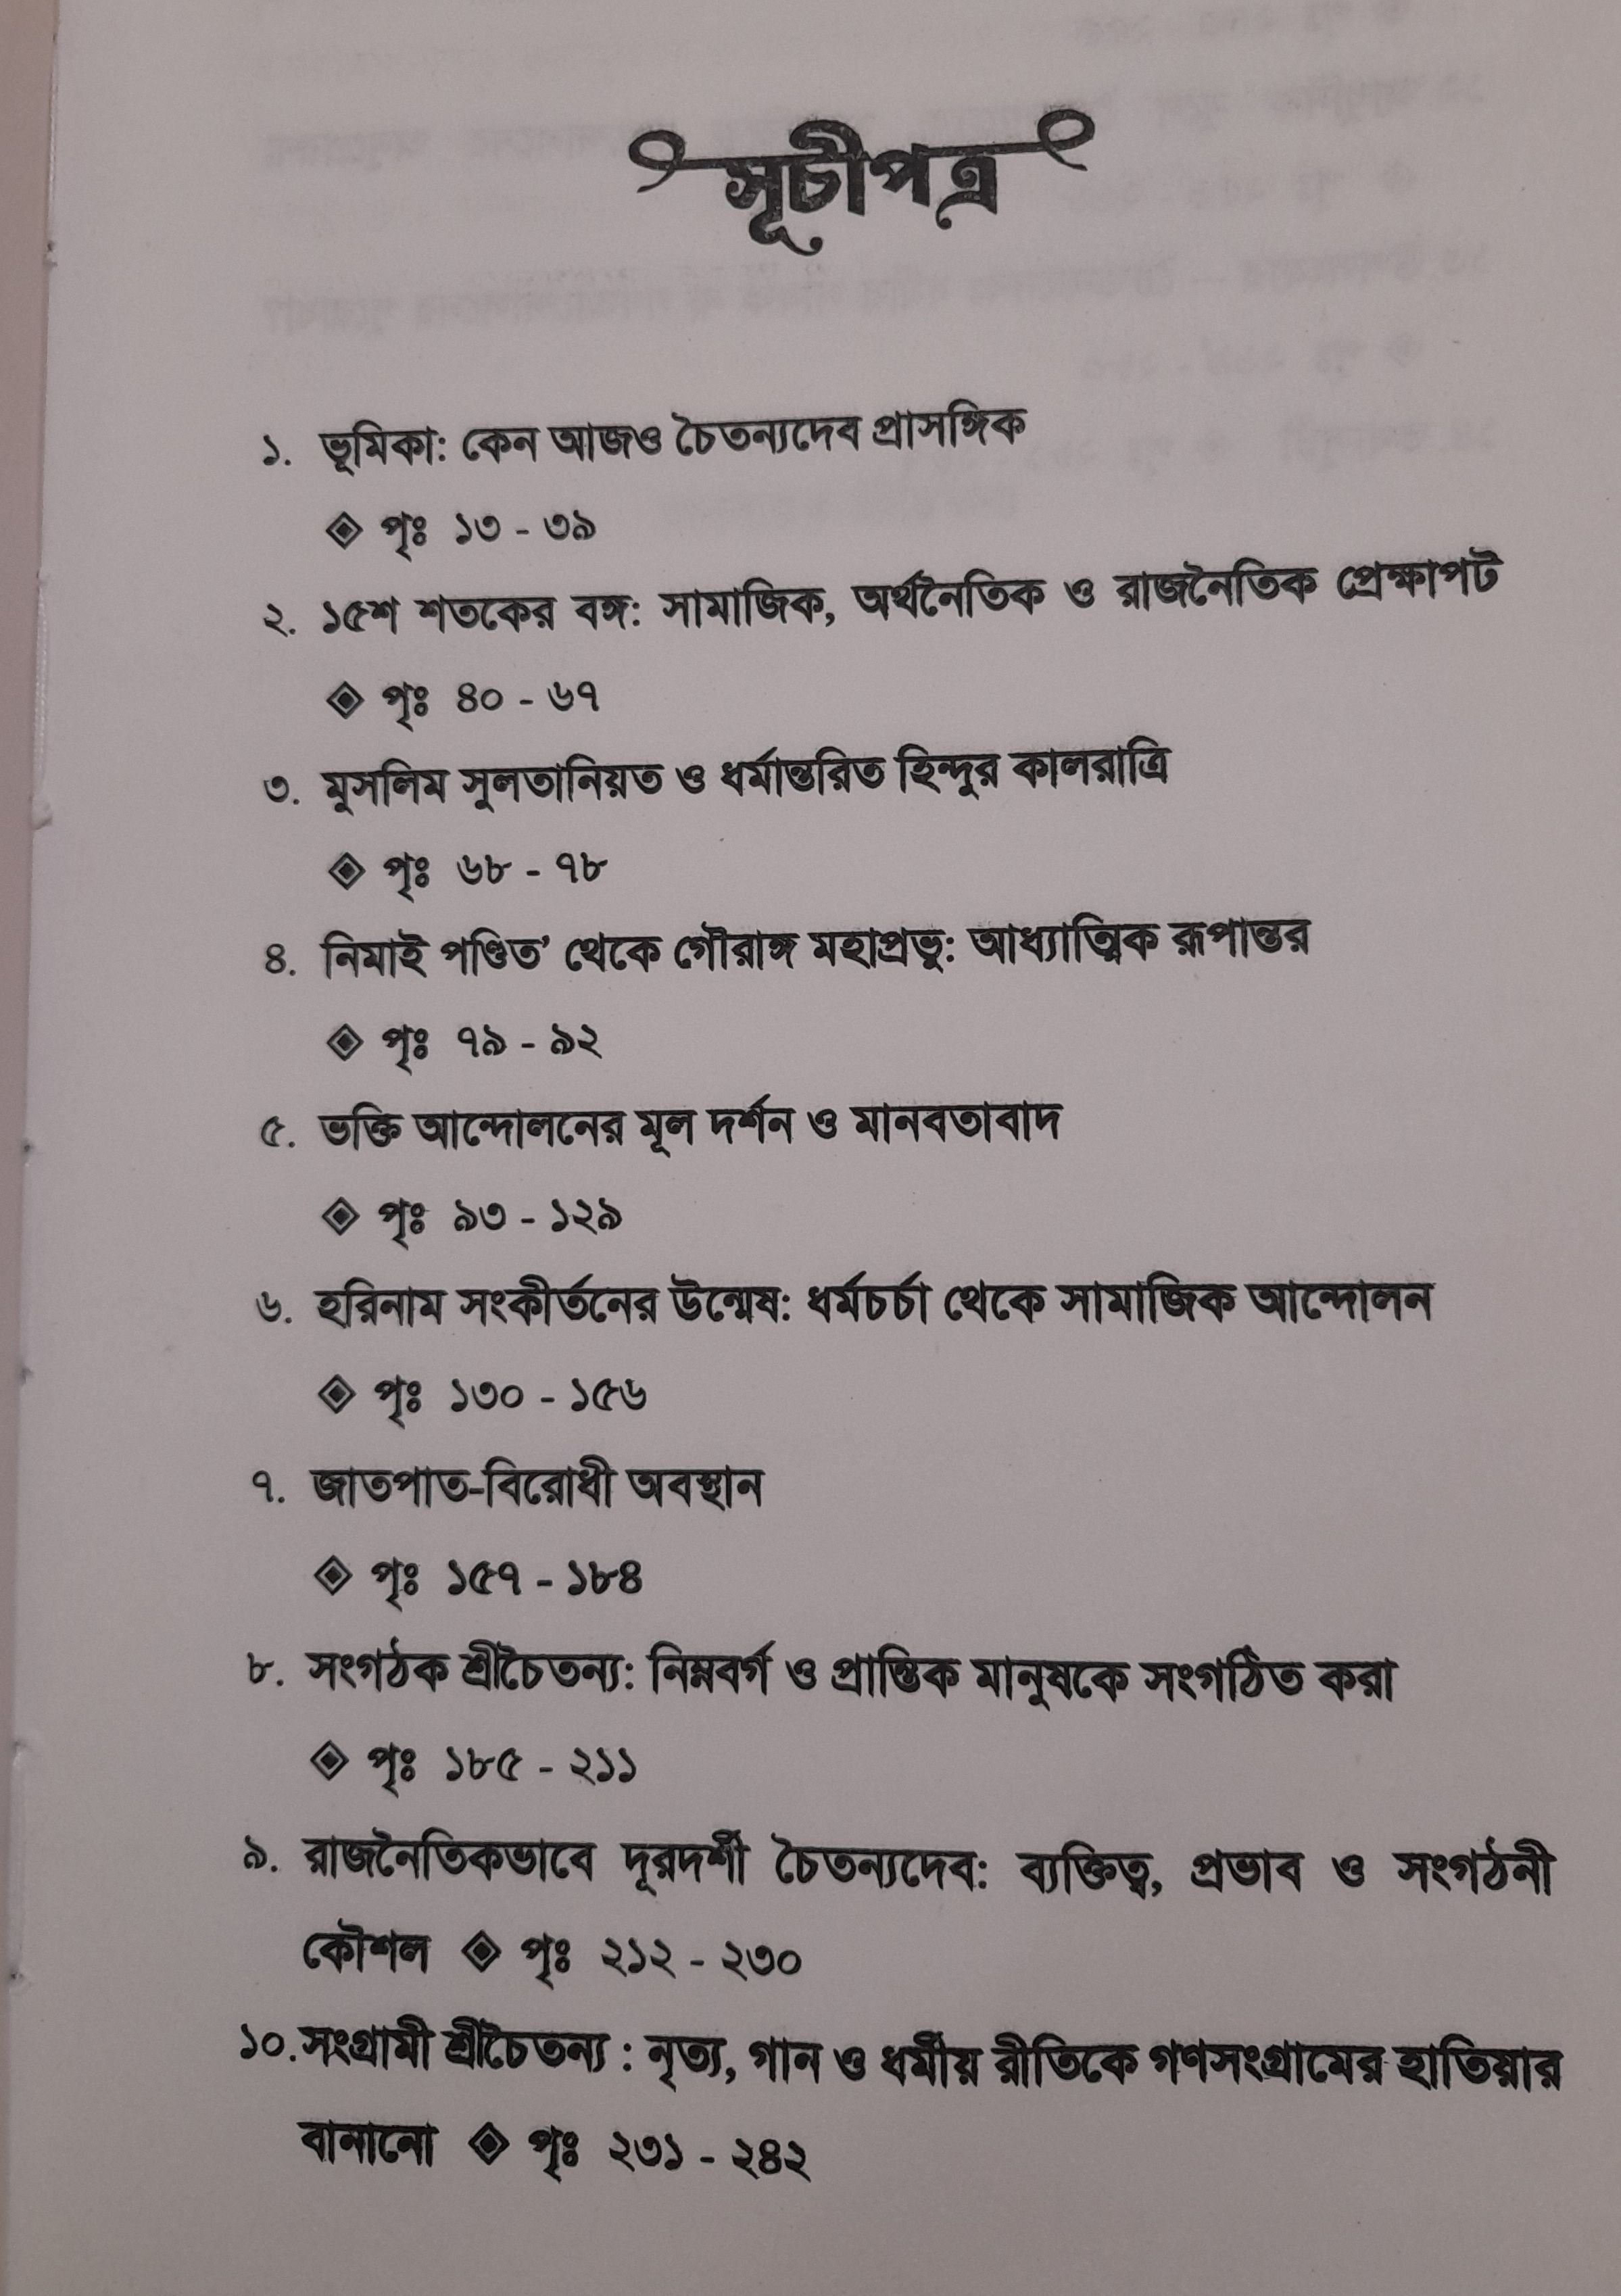 সূচীপত্র
১. ভূমিকা: কেন আজও চৈতন্যদেব প্রাসঙ্গিক
◈ পৃঃ ১৩ - ৩৯
২. ১৫শ শতকের বঙ্গ: সামাজিক, অর্থনৈতিক ও রাজনৈতিক প্রেক্ষাপট
◈ পৃঃ ৪০ - ৬৭
৩. মুসলিম সুলতানিয়ত ও ধর্মান্তরিত হিন্দুর কালরাত্রি
◈ পৃঃ ৬৮ - ৭৮
৪. নিমাই পণ্ডিত’ থেকে গৌরাঙ্গ মহাপ্রভু: আধ্যাত্মিক রূপান্তর
◈ পৃঃ ৭৯ - ৯২
৫. ভক্তি আন্দোলনের মূল দর্শন ও মানবতাবাদ
◈ পৃঃ ৯৩ - ১২৯
৬. হরিনাম সংকীর্তনের উন্মেষ: ধর্মচর্চা থেকে সামাজিক আন্দোলন
◈ পৃঃ ১৩০ - ১৫৬
৭. জাতপাত-বিরোধী অবস্থান
◈ পৃঃ ১৫৭ - ১৮৪
৮. সংগঠক শ্রীচৈতন্য: নিম্নবর্গ ও প্রান্তিক মানুষকে সংগঠিত করা
◈ পৃঃ ১৮৫ - ২১১
৯. রাজনৈতিকভাবে দূরদর্শী চৈতন্যদেব: ব্যক্তিত্ব, প্রভাব ও সংগঠনী
কৌশল ◈ পৃঃ ২১২ - ২৩০
১০. সংগ্রামী শ্রীচৈতন্য : নৃত্য, গান ও ধর্মীয় রীতিকে গণসংগ্রামের হাতিয়ার
বানানো ◈ পৃঃ ২৩১ - ২৪২